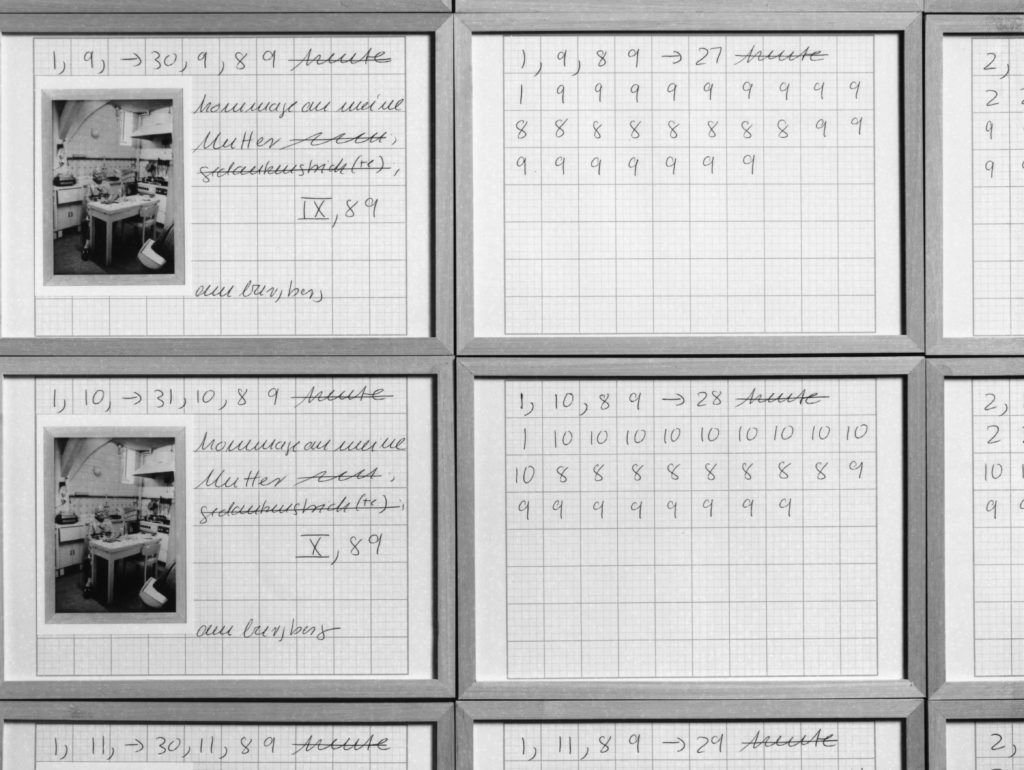 1, 9, → 30, 9, 8 9 heute
hommage an meine
Mutter
gedankenstrich(te);
IX, 89
am burgberg
1, 9, 8 9 → 27 heute
1 9 9 9 9 9 9 9 9 9
8 8 8 8 8 8 8 8 9 9
9 9 9 9 9 9 9
2,
2 2
9
9 9
1, 10, → 31, 10, 8 9 heute
hommage an meine
Mutter
gedankenstrich(te);
X, 89
am burgberg
1, 10, 8 9 → 28 heute
1 10 10 10 10 10 10 10 10 10
10 8 8 8 8 8 8 8 8 9
9 9 9 9 9 9 9 9
2,
2 2
10 1
9 9
1, 11, → 30, 11, 8 9 heute
1, 11, 8 9 → 29 heute
2,